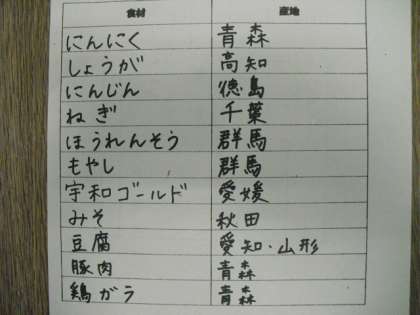 食材 産地
にんにく 青森
しょうが 高知
にんじん 徳島
ねぎ 千葉
ほうれんそう 群馬
もやし 群馬
宇和ゴールド 愛媛
みそ 秋田
豆腐 愛知・山形
豚肉 青森
鶏ガラ 青森